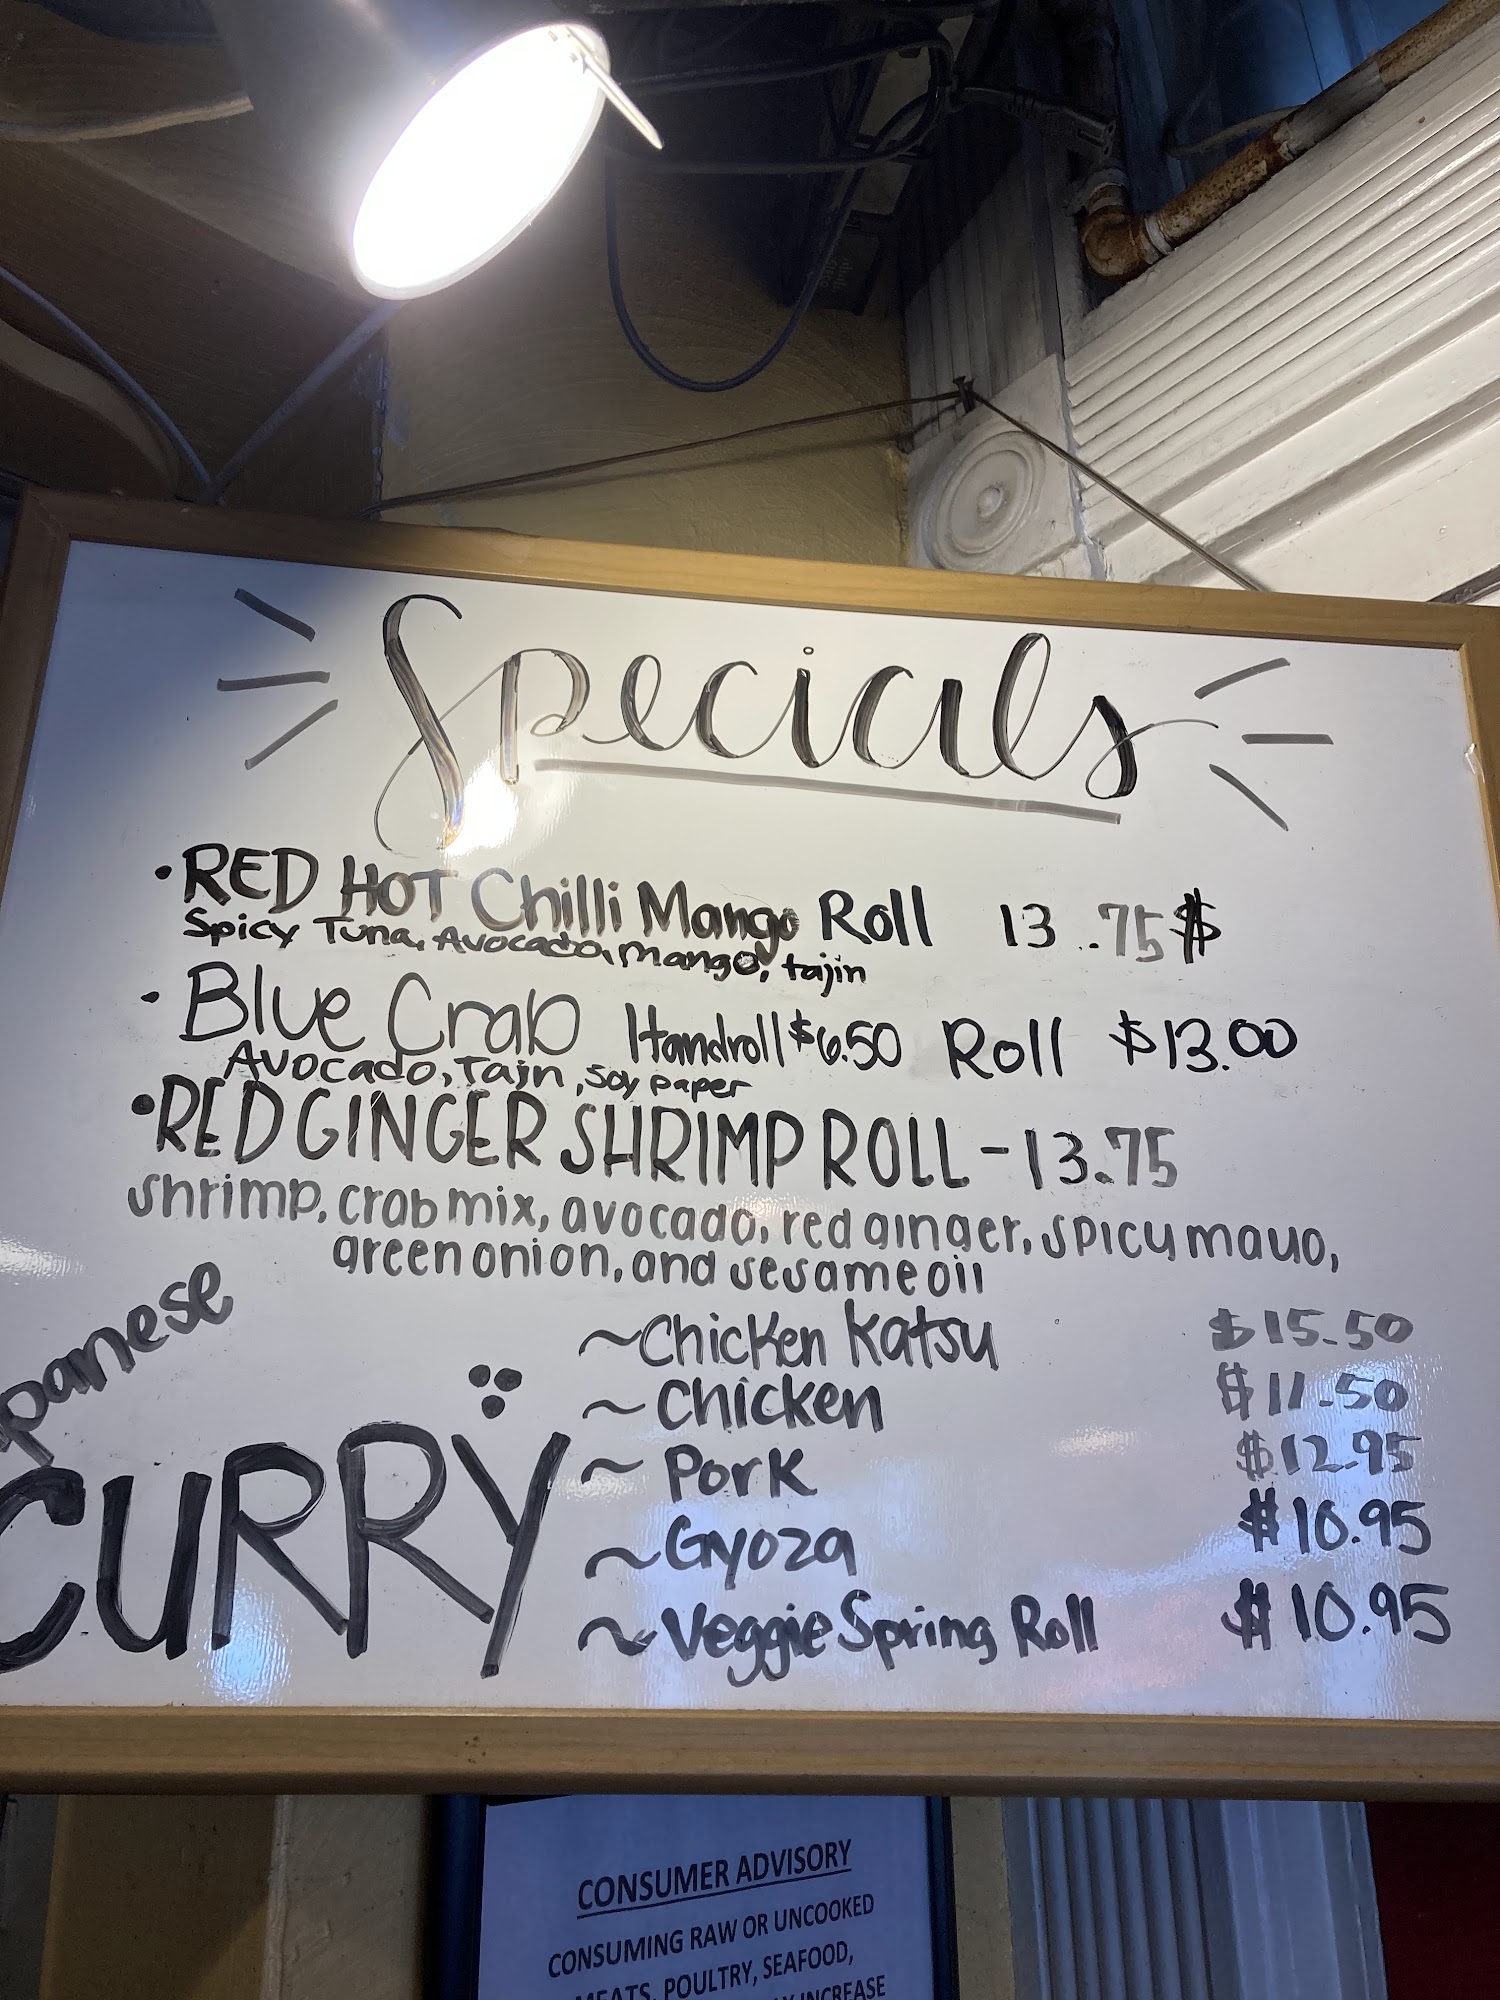 Specials
• RED HOT Chilli Mango Roll 13.75$
Spicy Tuna, Avocado, Mango, tajin
• Blue Crab Handroll $6.50 Roll $13.00
Avocado, Tajn, Soy paper
• RED GINGER SHRIMP ROLL - 13.75
shrimp, crab mix, avocado, red ginger, spicy mayo,
green onion, and sesame oil
panese
CURRY
~Chicken Katsu $15.50
~Chicken $11.50
~Pork $12.95
~Gyoza $10.95
~Veggie Spring Roll $10.95
CONSUMER ADVISORY
CONSUMING RAW OR UNCOOKED
MEATS, POULTRY, SEAFOOD,
INCREASE